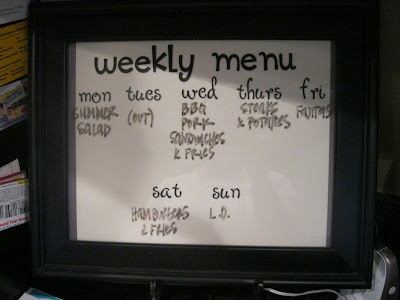 weekly menu
mon tues wed thurs fri
SUMMER
SALAD
(OUT)
BBQ
PORK
SANDWICHES
& FRIES
STEAKS
& POTATOES
FAJITAS
sat sun
HAMBURGERS
& FRIES
L.O.